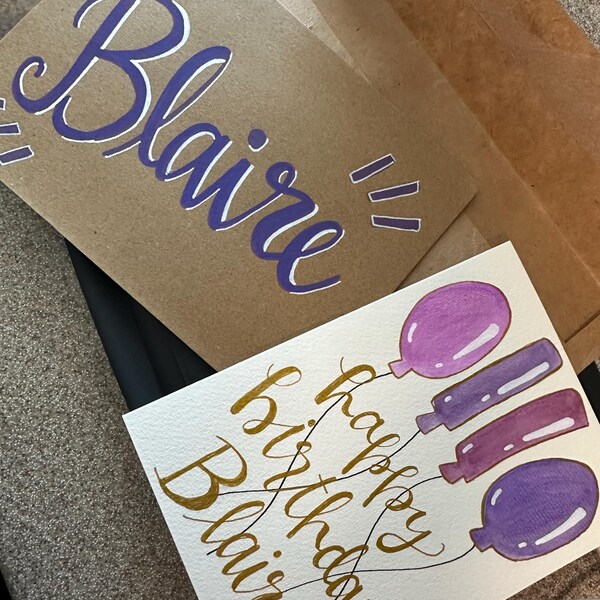 Blaire
happy
birthda
Blair